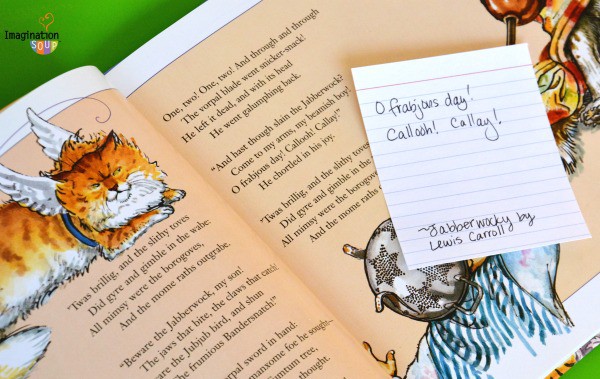 Imagination
SOUP
"Twas brillig, and the slithy toves
Did gyre and gimble in the wabe:
All mimsy were the borogoves,
And the mome raths outgrabe.
"Beware the Jabberwock, my son!
The jaws that bite, the claws that catch
the Jubjub bird, and shun
frumious Bandersnatch!"
sword in hand:
manxome foe he sought—
tree,
thought.
One, two! One, two! And through and through
The vorpal blade went snicker-snack!
He left it dead, and with its head
He went galumphing back.
"And hast thou slain the Jabberwock?
Come to my arms, my beamish boy!
O frabjous day! Callooh! Callay!"
He chortled in his joy.
'Twas brillig, and the slithy toves
Did gyre and gimble in the
All mimsy were the borogoves
And the mome raths
O frabjous day!
Callooh! Callay!
~Jabberwocky by
Lewis Carroll